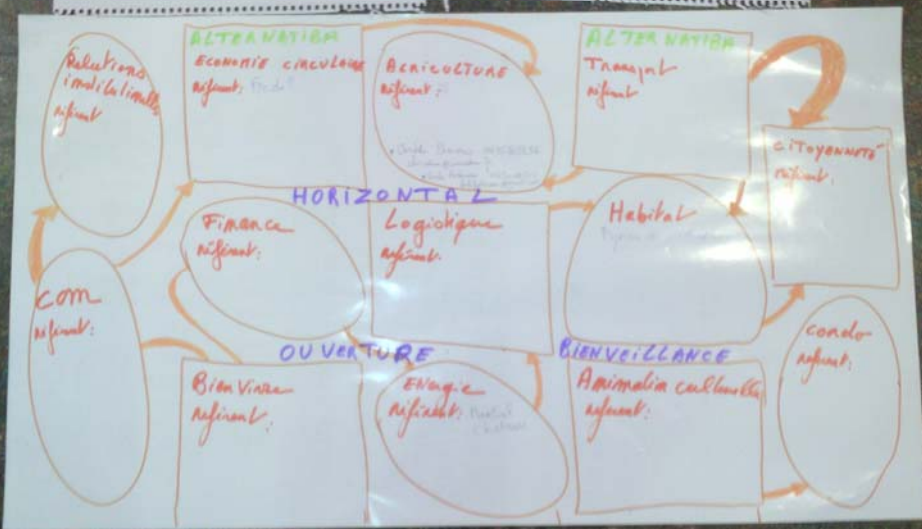 Relations
institutionnelles
référent
ALTERNATIBA
ECONOMIE CIRCULAIRE
référent:
AGRICULTURE
référent:
ALTERNATIBA
Transport
référent
CITOYENNETÉ
référent:
HORIZONTAL
Finance
référent:
Logistique
référent:
Habitat
com
référent:
condo
référent:
OUVERTURE
BIENVEILLANCE
Bien Vivre
référent:
ENergie
référent:
Animation culturelle
référent: